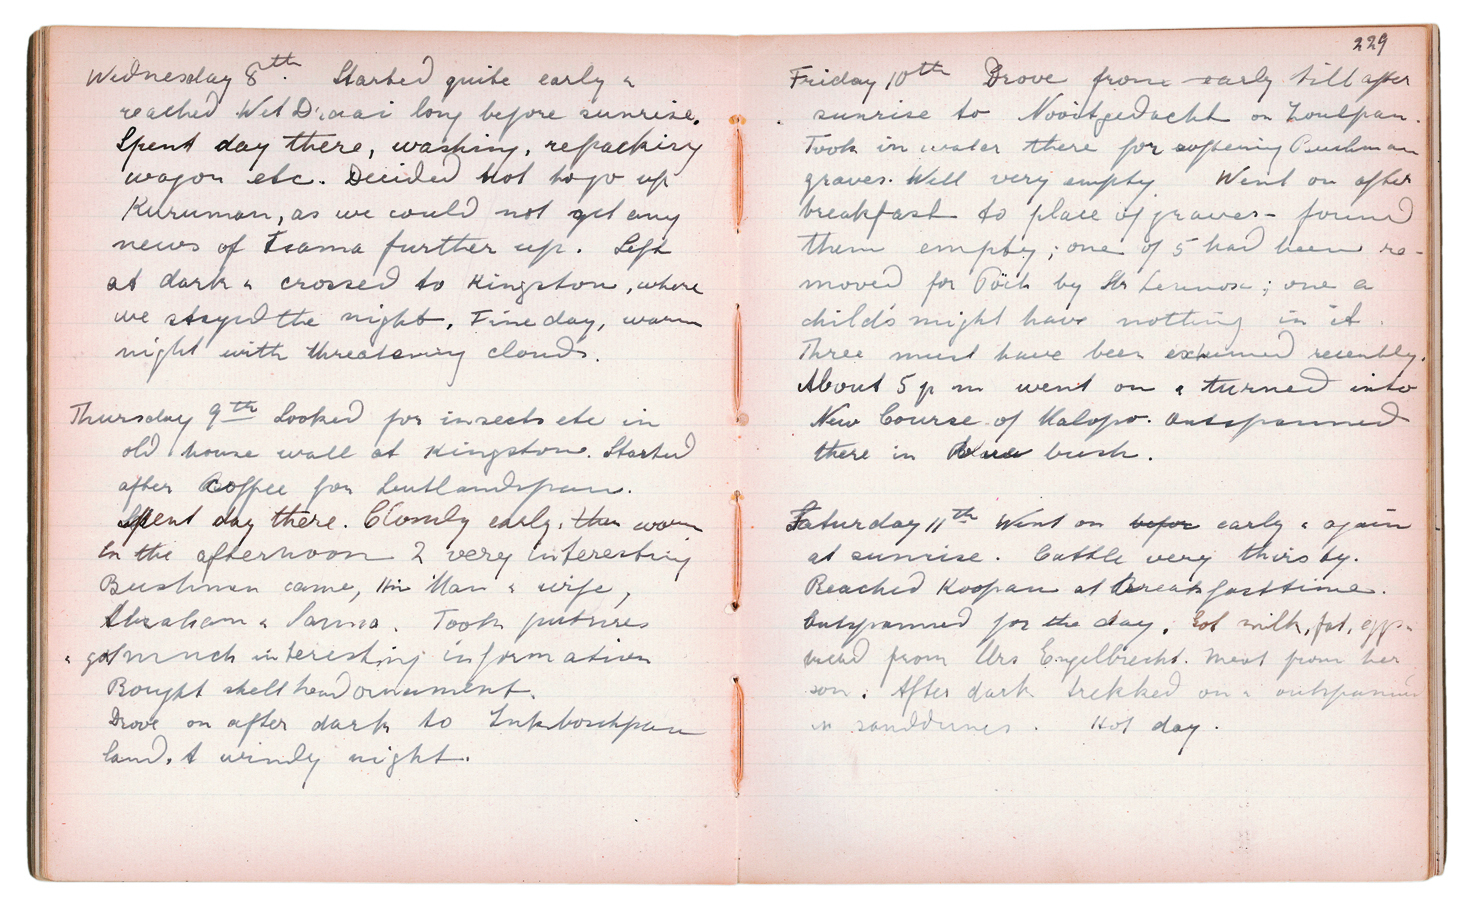 Wednesday 8th. Started quite early &
reached Wit Draai long before sunrise.
Spent day there, washing, repacking
wagon etc. Decided not to go up
Kuruman, as we could not get any
news of Tsama further up. Left
at dark & crossed to Kingston, where
we stayed the night. Fine day, warm
night with threatening clouds.
Thursday 9th Looked for insects etc in
old house wall at Kingston. Started
after Coffee for
Spent day there. Cloudy early, then warm
In the afternoon 2 very interesting
Bushmen came, Man & wife,
Abraham & Sanna. Took pictures
& got much interesting information
Bought shell head ornament.
Drove on after dark to
land. A windy night.
229
Friday 10th Drove from early till after
sunrise to Nooitgedacht on Zoutpan.
Took in water there for softening Bushman
graves. Well very empty Went on after
breakfast to place of graves - found
them empty; one of 5 had been re-
moved for Pöch by Mr Lennox; one a
child's might have nothing in it.
Three must have been exhumed recently.
About 5 p m went on & turned into
New Course of Molopo. Outspanned
there in bush.
Saturday 11th Went on befor early & again
at sunrise. Cattle very thirsty.
Reached Koopan at Breakfasttime.
Outspanned for the day. Got milk, fat, eggs &
bread from Mrs Engelbrecht. Meat from her
son. After dark trekked on & outspanned
in sanddunes. Hot day.